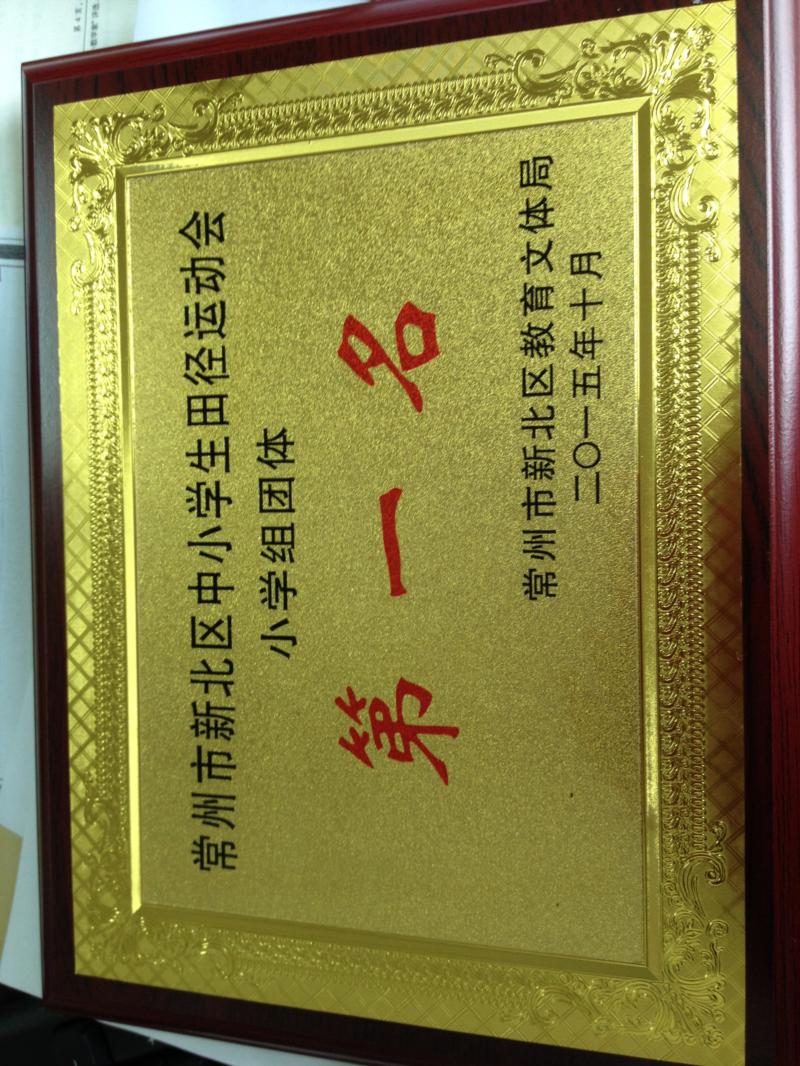 常州市新北区中小学生田径运动会
小学组团体
第一名
常州市新北区教育文体局
二〇一五年十月